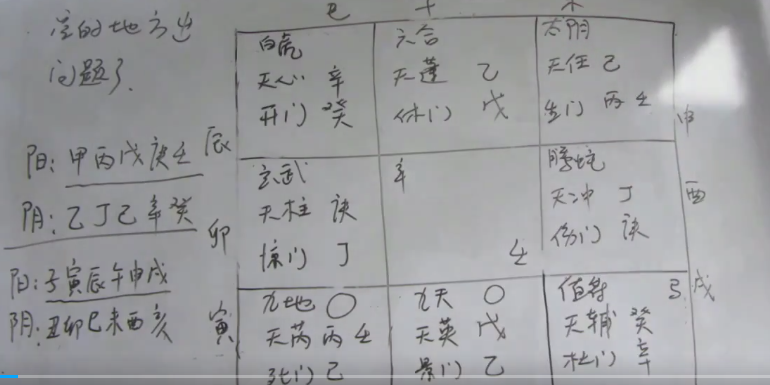 住的地方出
问题了.
阳: 甲丙戊庚壬
阴: 乙丁己辛癸
阳: 子寅辰午申戌
阴: 丑卯巳未酉亥
辰
卯
寅
白虎
天心 辛
开门 癸
六合
天蓬 乙
休门 戊
太阴
天任 己
生门 丙壬
申
玄武
天柱 庚
惊门 丁
壬
螣蛇
天冲 丁
伤门 庚
酉
九地 〇
天芮 丙壬
死门 己
九天 〇
天英 戊
景门 乙
值符 马
天辅 癸
杜门 辛
戌